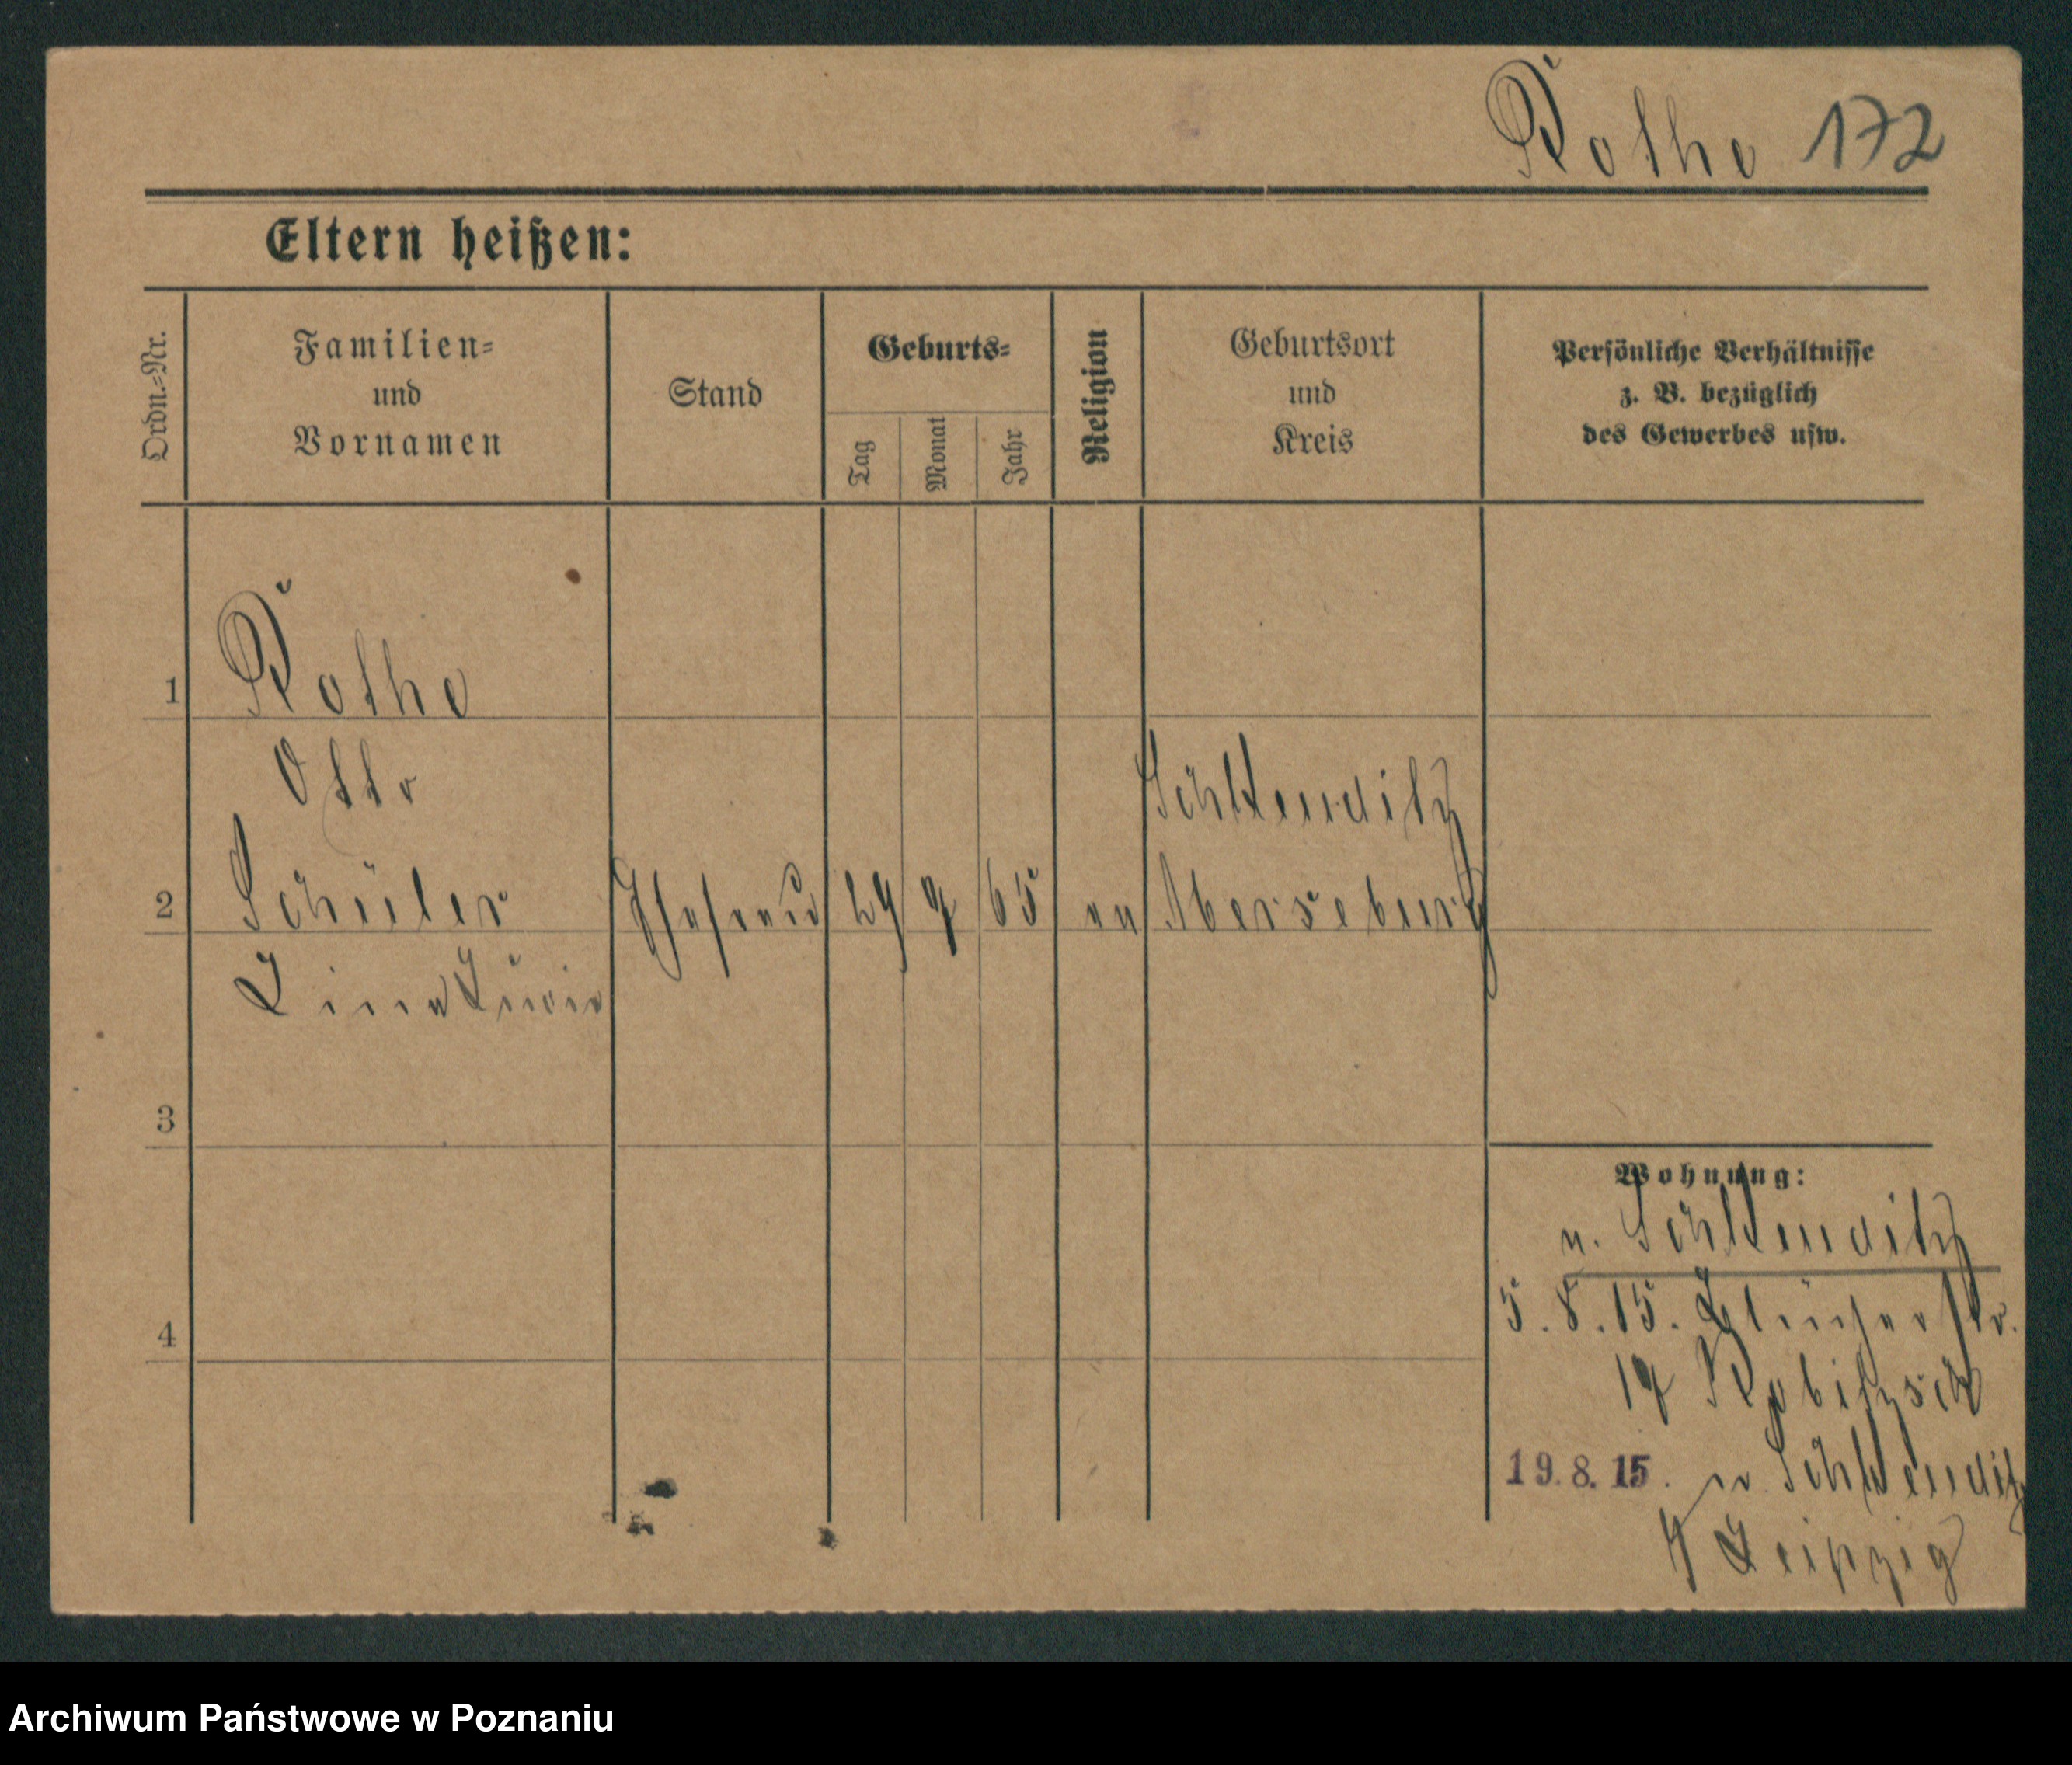 Rothe 172
Eltern heißen:
Ordn.-Nr.
Familien-
und
Vornamen
Stand
Geburts-
Tag
Monat
Jahr
Religion
Geburtsort
und
Kreis
Persönliche Verhältnisse
z. B. bezüglich
des Gewerbes usw.
1 Rothe
Otto
Schkeuditz
2 Schüler Ehefrau 29 9 65 ev Merseburg
Lina
3
4
Wohnung:
n. Schkeuditz
5. 8. 15. Blücherstr.
19
19. 8. 15. n Schkeuditz
Leipzig
Archiwum Państwowe w Poznaniu